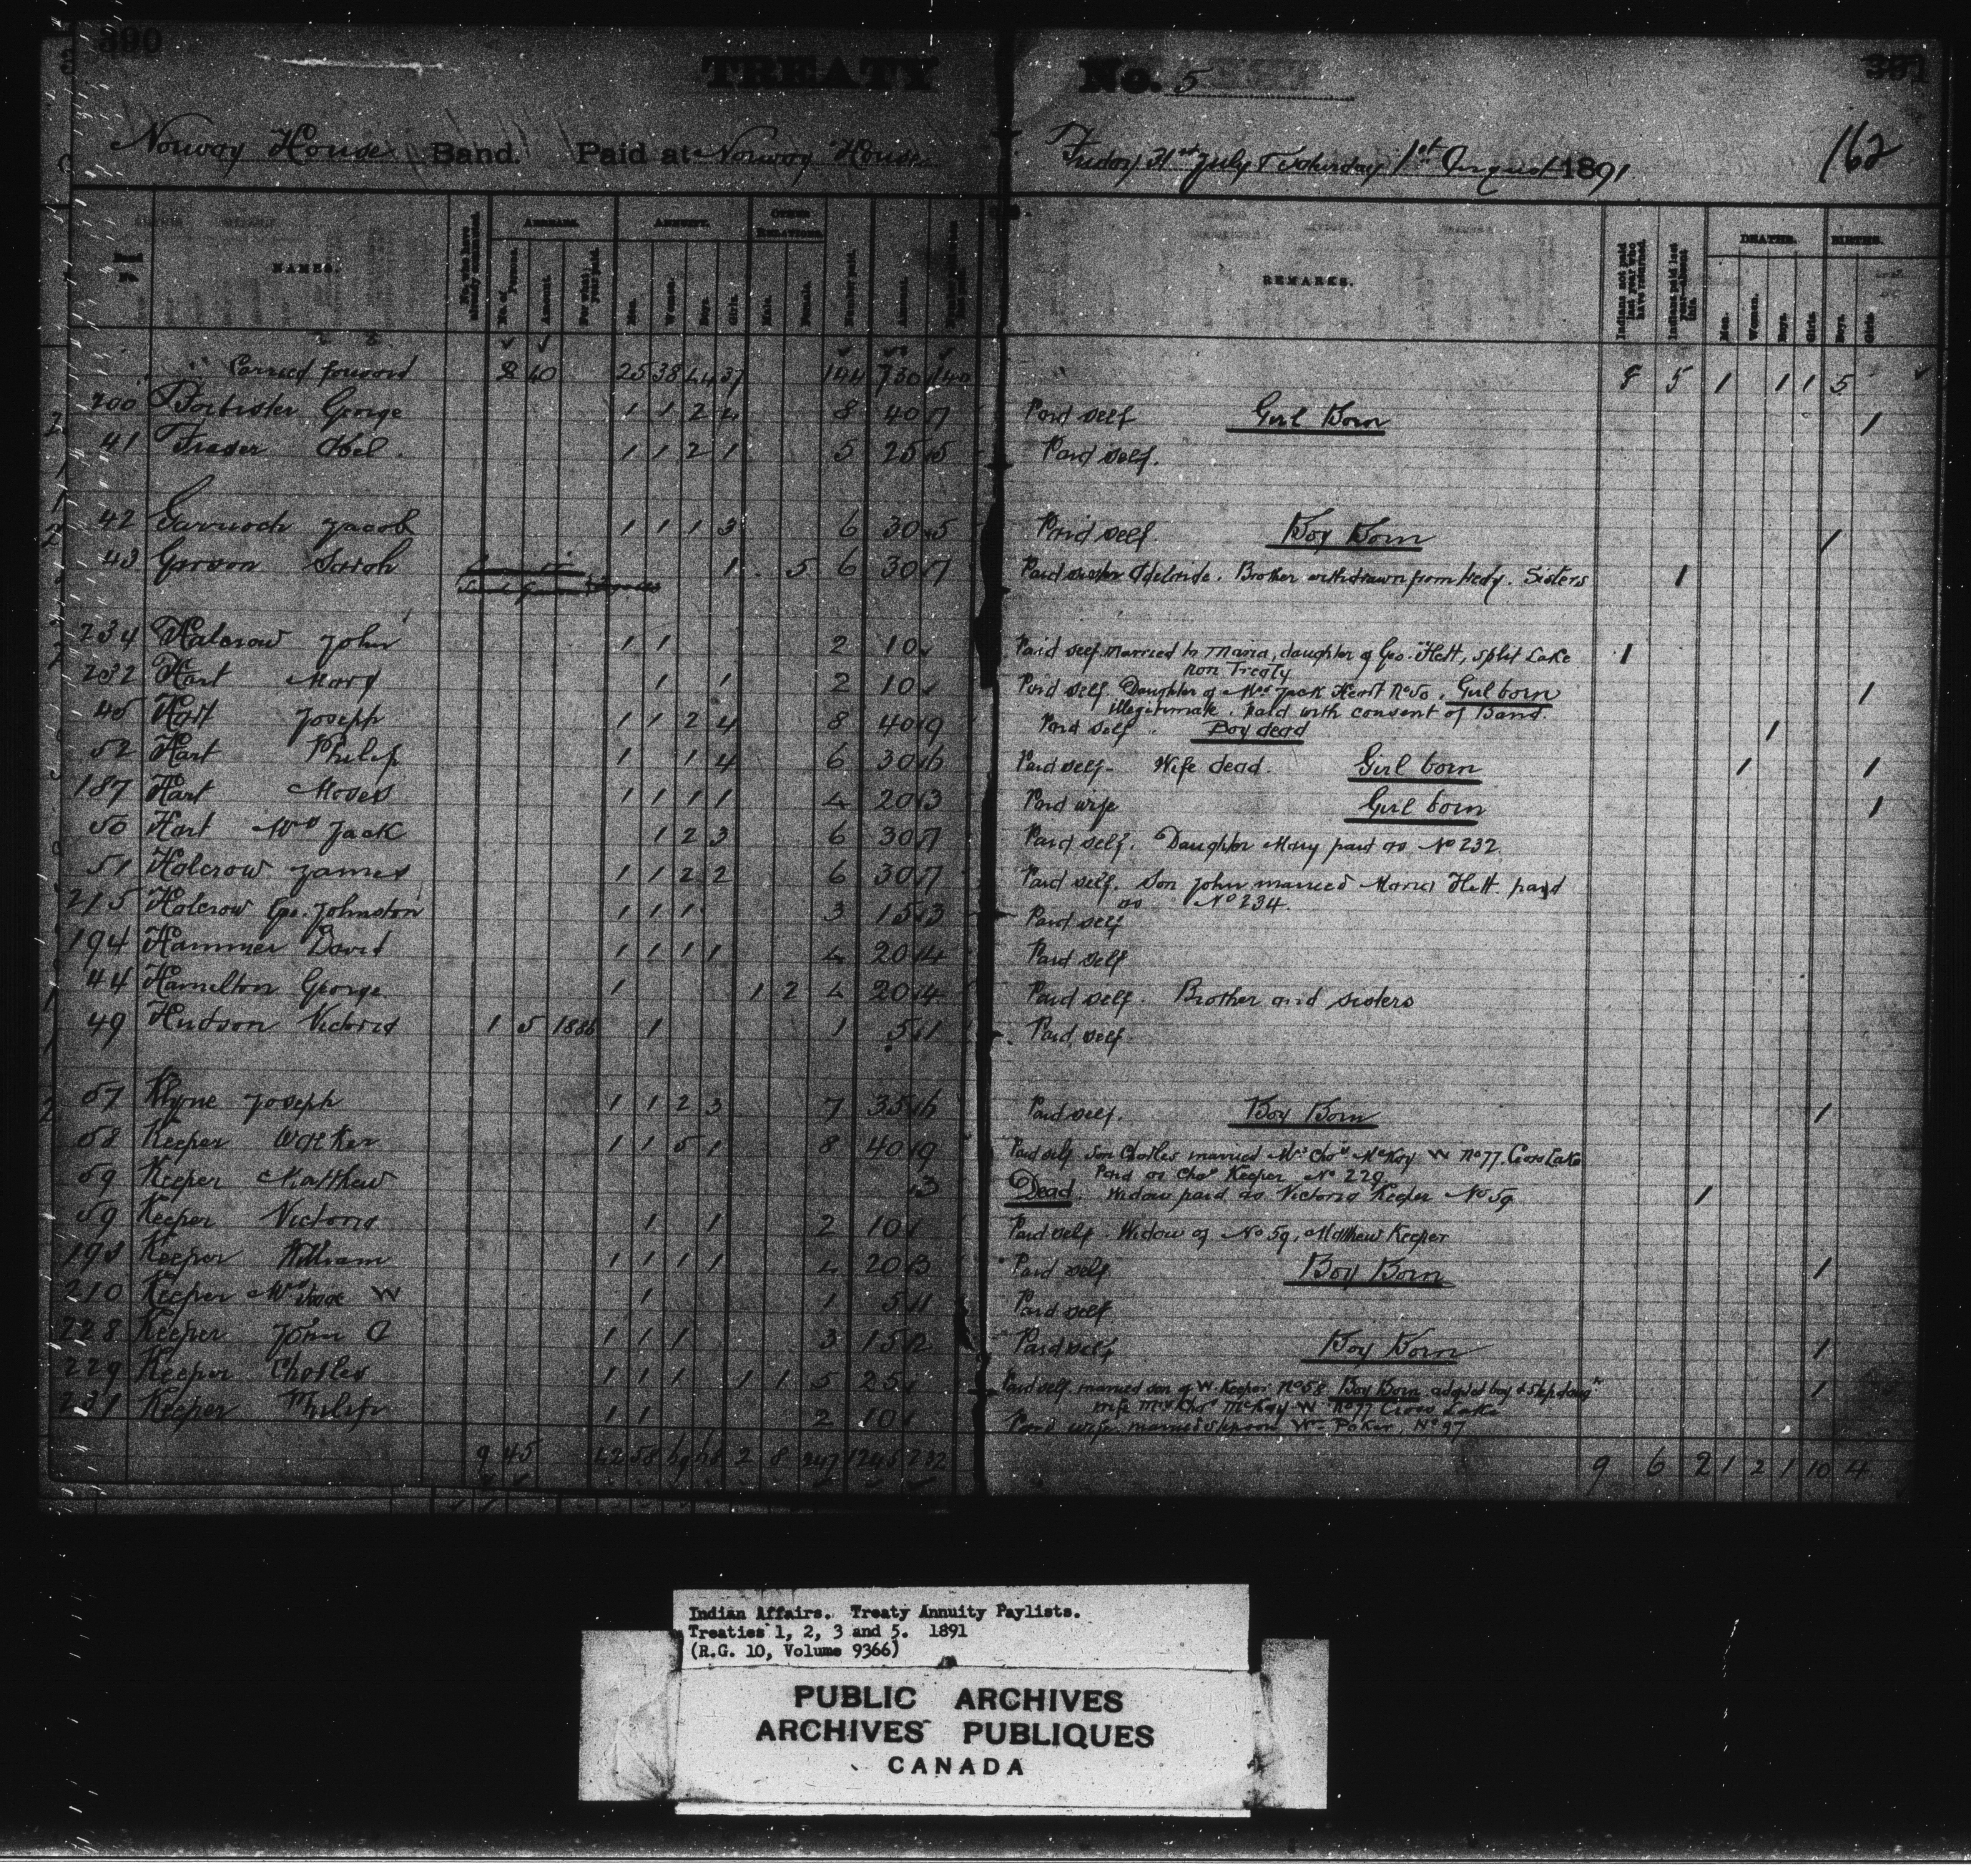 390
TREATY No. 5
391
Norway House Band. Paid at Norway House Friday 31st July & Saturday 1st August 1891 162
Band No. NAMES. No. who have already commuted. ARREARS. No. of Persons. Amount. For what year paid. ANNUITY. Men. Women. Boys. Girls. OTHER RELATIONS. Male. Female. Number paid. Amount. REMARKS. Indians not paid last year who have returned. Indians paid last year—absent this. DEATHS. Men. Women. Boys. Girls. BIRTHS. Boys. Girls.
Carried forward 8 40 25 38 44 37 144 730 140 8 5 1 1 1 5
200 George 1 1 2 4 8 40 7 Paid self Girl Born 1
41 Fraser Abel 1 1 2 1 5 25 5 Paid self.
42 Garrioch Jacob 1 1 1 3 6 30 5 Paid self. Boy Born 1
43 Garson Sarah 1 5 6 30 7 Paid sister Adelaide. Brother withdrawn from treaty. Sisters 1
234 Halcrow John 1 1 2 10 Paid self married to Maria, daughter of Geo. Flett, Split Lake 1
non Treaty
232 Hart Mary 1 1 2 10 Paid self. Daughter of Mrs Jack Heart No 50. Girl born 1
illegitimate. paid with consent of Band.
45 Hart Joseph 1 1 2 4 8 40 9 Paid self. Boy dead 1
52 Hart Philip 1 1 4 6 30 6 Paid self. Wife dead. Girl born 1 1
187 Hart Moses 1 1 1 1 4 20 3 Paid wife Girl born 1
50 Hart Mrs Jack 1 2 3 6 30 7 Paid self. Daughter Mary paid as No 232
51 Halcrow James 1 1 2 2 6 30 7 Paid self. Son John married Maria Flett paid
as No 234.
215 Halcrow Geo. Johnston 1 1 1 3 15 3 Paid self
194 Hammer David 1 1 1 1 4 20 4 Paid self
44 Hamilton George 1 1 2 4 20 4 Paid self. Brother and sisters
49 Hudson Victoria 1 5 1886 1 1 5 1 Paid self
57 Klyne Joseph 1 1 2 3 7 35 6 Paid self. Boy Born 1
58 Keeper Walker 1 1 5 1 8 40 9 Paid self son Charles married Mrs Chas McKay W No 77. Cross Lake
Paid as Chas Keeper No 229
59 Keeper Matthew 3 Dead. Widow paid as Victoria Keeper No 59 1
59 Keeper Victoria 1 1 2 10 Paid self. Widow of No 59, Matthew Keeper
193 Keeper William 1 1 1 1 4 20 3 Paid self Boy Born 1
210 Keeper Mrs W 1 1 5 1 Paid self
228 Keeper John A 1 1 1 3 15 2 Paid self Boy Born 1
229 Keeper Charles 1 1 1 1 1 5 25 Paid self married son of W. Keeper No 58. Boy Born adopted boy & step daugr 1
wife Mrs Chas McKay W No 77 Cross Lake
231 Keeper Philip 1 1 2 10 Paid wife married stepson Wm Poker, No 97
9 45 42 58 69 68 2 8 247 1245 232 9 6 2 1 2 1 10 4
Indian Affairs. Treaty Annuity Paylists.
Treaties 1, 2, 3 and 5. 1891
(R.G. 10, Volume 9366)
PUBLIC ARCHIVES
ARCHIVES PUBLIQUES
CANADA